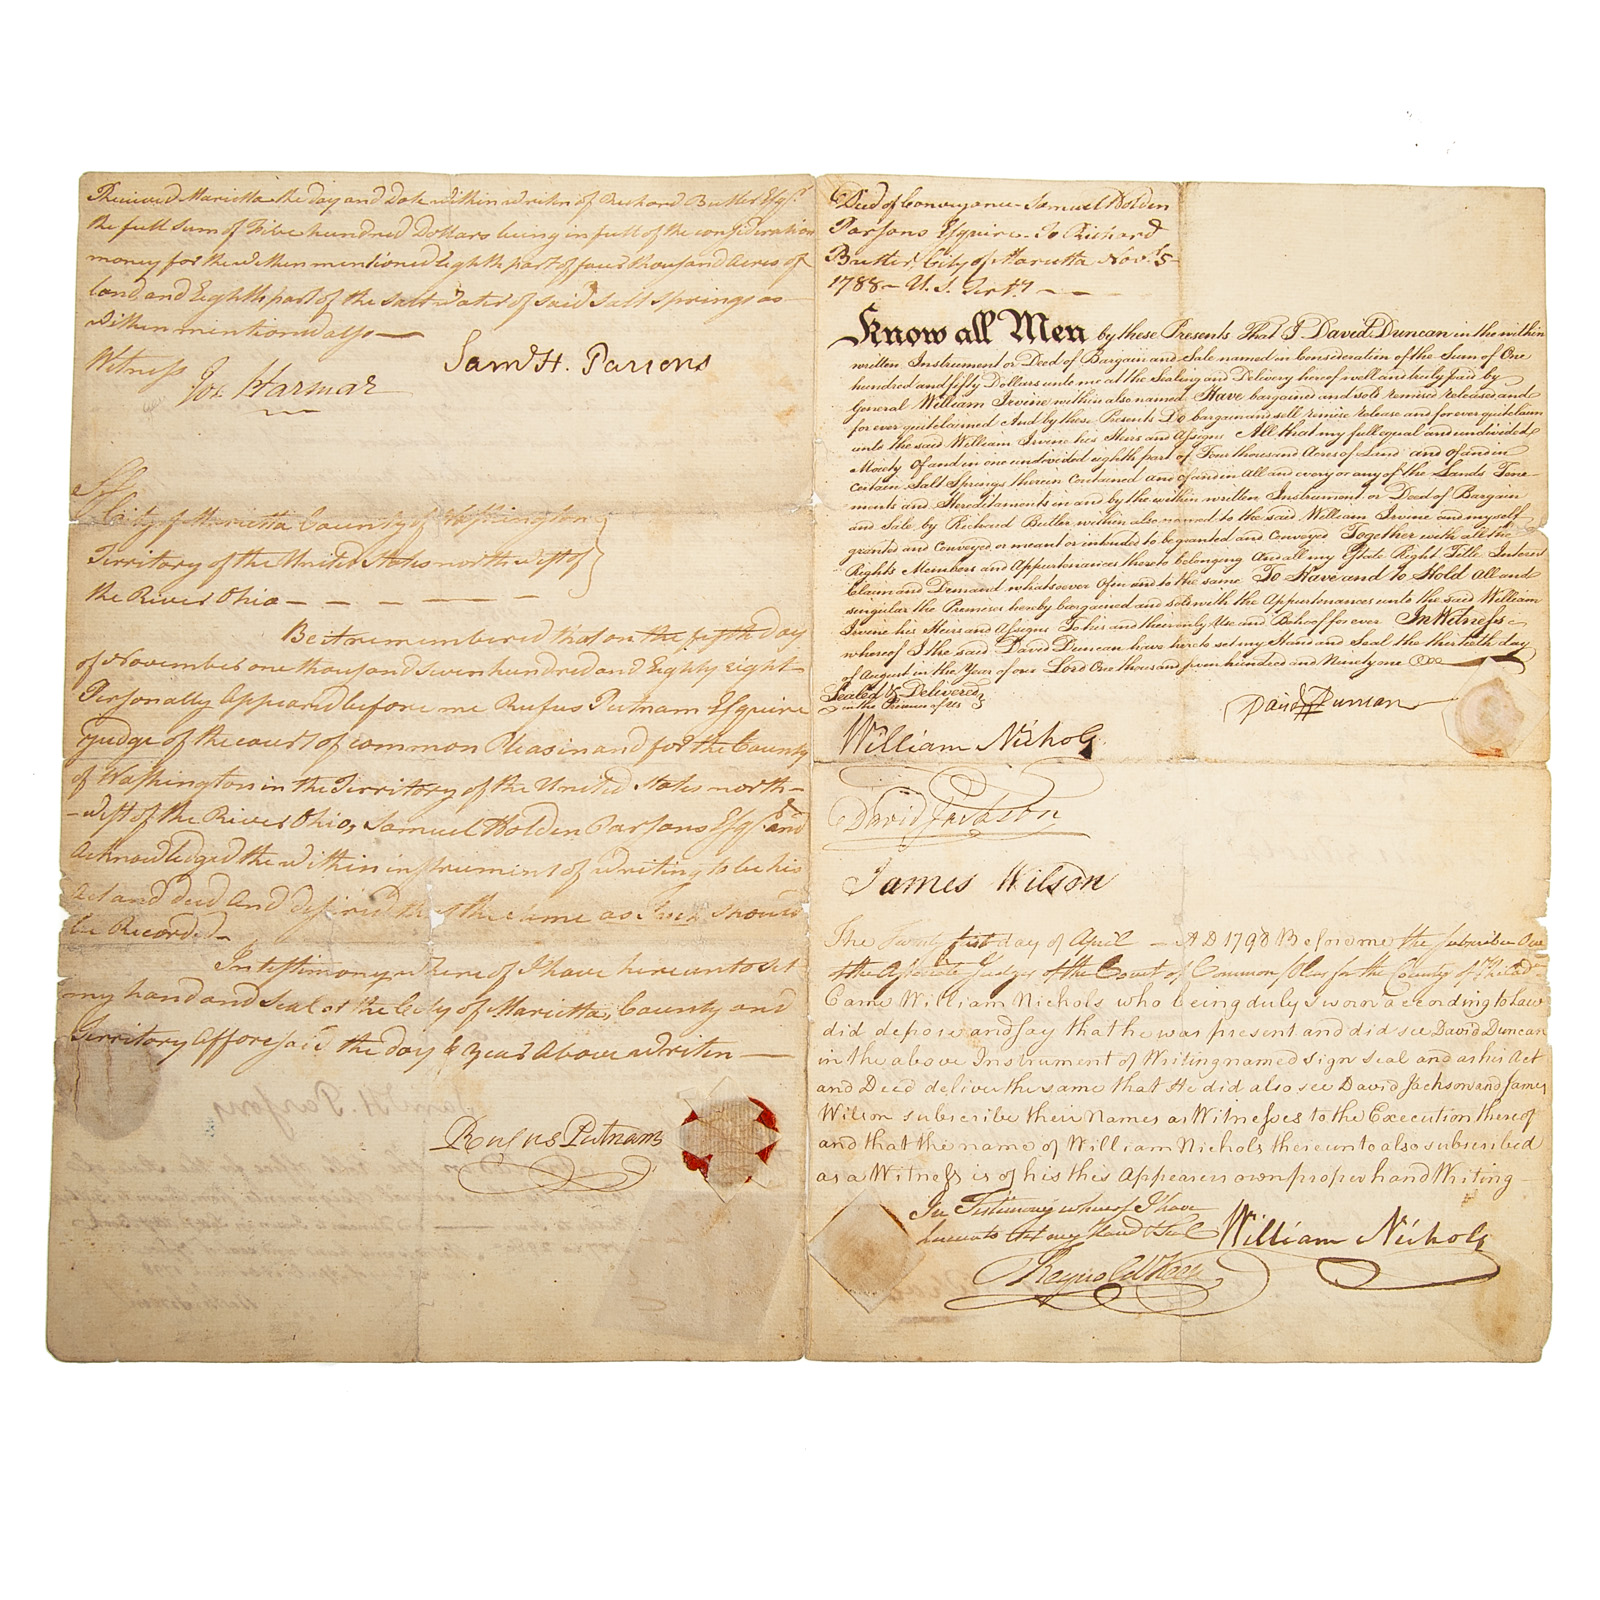 Received Marietta the day and Date within written of Richard Butler Esqr.
the full Sum of Five hundred Dollars being in full of the consideration
money for the within mentioned Eighth part of four thousand Acres of
land and Eighth part of the salt Water of said Salt Springs as
within mentioned also
Witness
Saml H. Parsons
Jos Harmar
City of Marietta County of Washington
Territory of the United States north West of
the River Ohio
Be it remembered that on the fifth day
of November one thousand seven hundred and Eighty eight
Personally Appeared before me Rufus Putnam Esquire
Judge of the court of common Pleas in and for the County
of Washington in the Territory of the United States north-
-West of the River Ohio, Samuel Holden Parsons Esqr. and
Acknowledged the within instrument of writing to be his
Act and deed and desired that the same as Such should
be Recorded
In testimony where of I have hereunto set
my hand and Seal at the City of Marietta, County and
Territory afforesaid the day & Year Above writen
Rufus Putnam
Saml H. Parsons
Deed of Conveyance Samuel Holden
Parsons Esquire To Richard
Butler, City of Marietta Novr. 5
1788 - U. S. Terty
Know all Men by these Presents That I David Duncan in the within
written Instrument or Deed of Bargain and Sale named in Consideration of the Sum of One
hundred and fifty Dollars unto me at the Sealing and Delivery hereof well and truly paid by
General William Irvine within also named Have bargained and sold remised released and
for ever quitclaimed And by these Presents Do bargain and sell remise release and for ever quitclaim
unto the said William Irvine his Heirs and Assigns All that my full equal and undivided
Moiety Of and in one undivided eighth part of Four thousand Acres of Land and of and in
certain Salt Springs therein Contained and of and in All and every or any of the Lands Tene-
ments and Hereditaments in and by the within written Instrument or Deed of Bargain
and Sale by Richard Butler within also named to the said William Irvine and myself
granted and Conveyed or meant or intended to be granted and Conveyed Together with all the
Rights Members and Appurtenances thereto belonging And all my Estate Right Title Interest
Claim and Demand whatsoever Of in and to the same To Have and to Hold All and
singular the Premises hereby bargained and sold with the Appurtenances unto the said William
Irvine his Heirs and Assigns To his and their only Use and Behoof for ever In Witness
whereof I the said David Duncan have hereto set my Hand and Seal the thirtieth day
of August in the Year of our Lord One thousand seven hundred and Ninety one
Sealed & Delivered
in the Presence of us
David Duncan
William Nichols
David Jackson
James Wilson
The Twenty first day of April A D 1798 Before me the subscriber One
of the Associate Judges of the Court of Common Pleas for the County of Philad
Came William Nichols who being duly sworn according to Law
did depose and say that he was present and did see David Duncan
in the above Instrument of Writing named sign seal and as his Act
and Deed deliver the same that He did also see David Jackson and James
Wilson subscribe their Names as Witnesses to the Execution thereof
and that the name of William Nichols thereunto also subscribed
as a Witness is of his this Appearers own proper hand Writing
In Testimony whereof I have
hereunto set my Hand & Seal
William Nichols
Reynold Keen